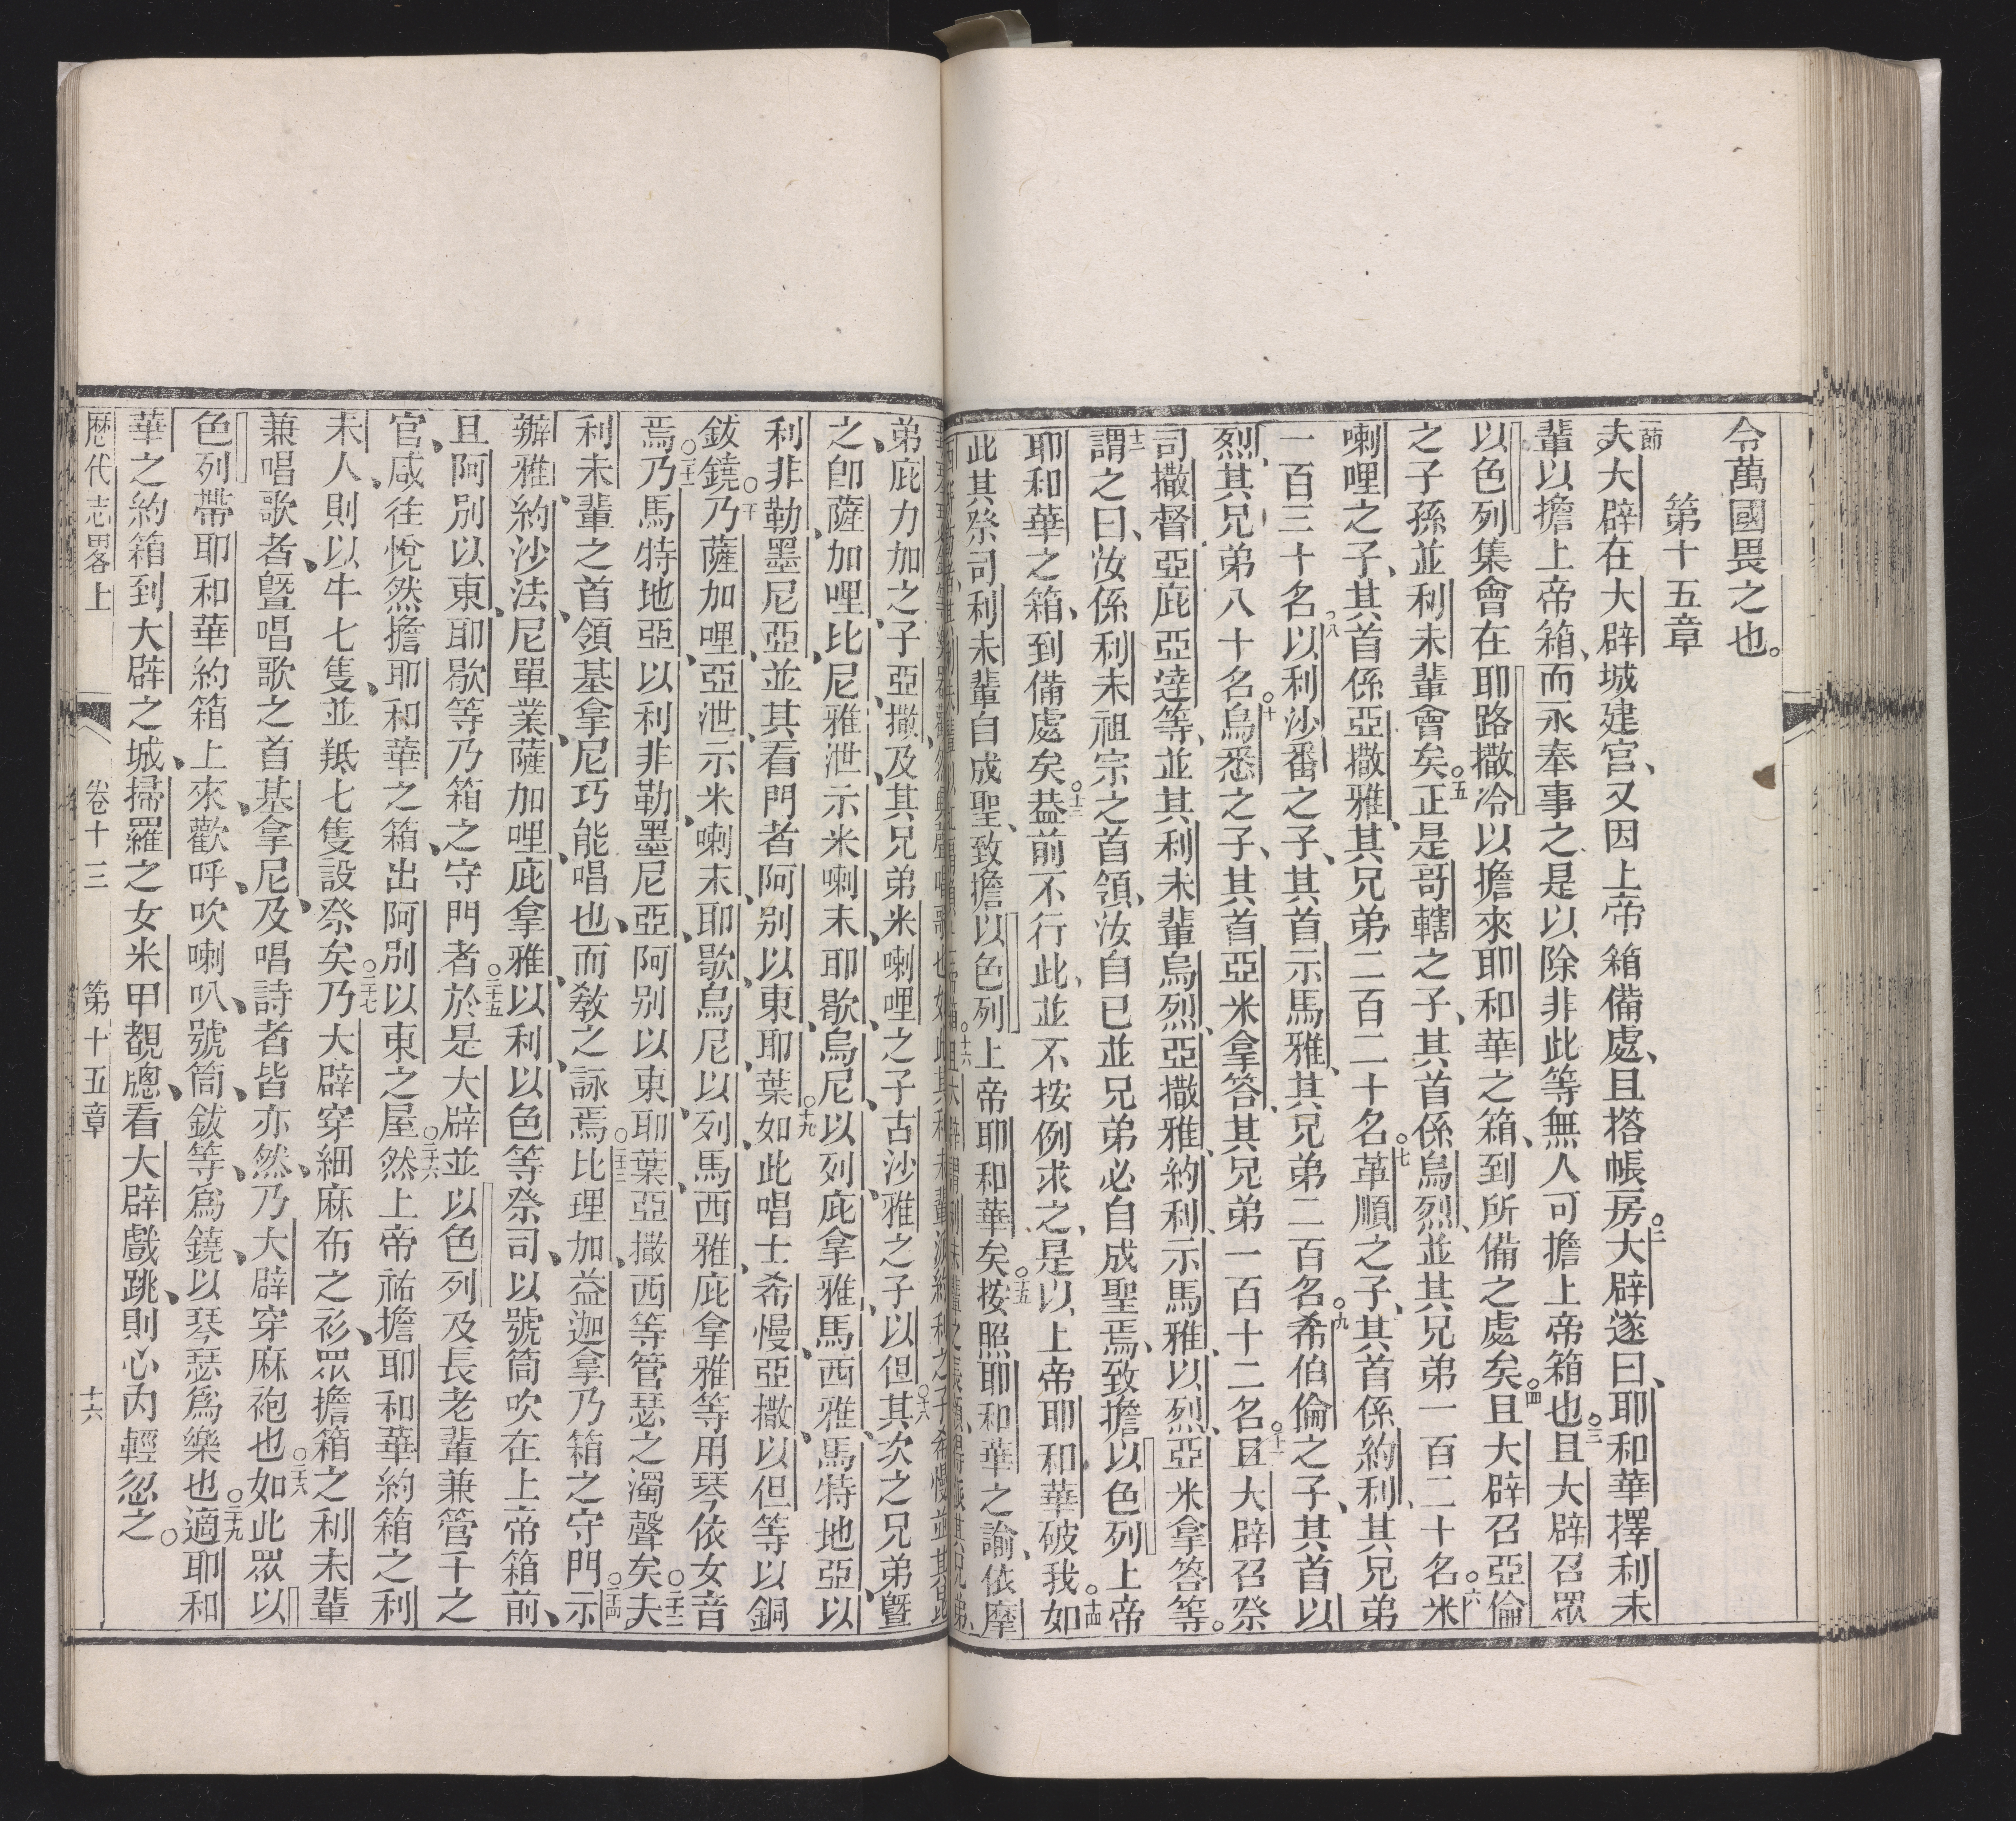 令萬國畏之也。
第十五章
夫大辟在大辟城建宮、又因上帝箱備處、且搭帳房。○二大辟遂曰、耶和華擇利未
輩以擔上帝箱、而永奉事之、是以除非此等無人可擔上帝箱也。○三且大辟召眾
以色列集會在耶路撒冷以擔來耶和華之箱、到所備之處矣。○四且大辟召亞倫
之子孫並利未輩會矣。○五正是哥轄之子、其首係烏烈、並其兄弟一百二十名。○六米
喇哩之子、其首係亞撒雅、其兄弟二百二十名。○七革順之子、其首係約利、其兄弟
一百三十名。○八以利沙番之子、其首示馬雅、其兄弟二百名。○九希伯倫之子、其首以
烈、其兄弟八十名。○十烏悉之子、其首亞米拿答、其兄弟一百十二名。○十一且大辟召祭
司撒督亞庇亞達等、並其利未輩烏烈、亞撒雅、約利、示馬雅、以烈、亞米拿答等。
十二謂之曰、汝係利未祖宗之首領、汝自已並兄弟必自成聖焉、致擔以色列上帝
耶和華之箱、到備處矣。○十三葢前不行此、並不按例求之、是以上帝耶和華破我。○十四如
此其祭司利未輩自成聖、致擔以色列上帝耶和華矣。○十五按照耶和華之諭、依摩
弟庇力加之子亞撒、及其兄弟米喇哩之子古沙雅之子、以但。○十八其次之兄弟曁
之、卽薩加哩、比尼、雅泄、示米喇末、耶歇、烏尼、以列、庇拿雅、馬西雅、馬特地亞、以
利非勒、墨尼亞、並其看門者阿別以東、耶葉。○十九如此唱士希慢、亞撒、以但等以銅
鈸鐃。○二十乃薩加哩、亞泄、示米喇末、耶歇、烏尼、以列、馬西雅、庇拿雅等用琴、依女音
焉。○二十一乃馬特地亞、以利非勒、墨尼亞、阿別以東、耶葉、亞撒西等管瑟之濁聲矣。○二十二夫
利未輩之首領基拿尼巧能唱也、而敎之詠焉。○二十三比理加、益迦拿乃箱之守門。○二十四示
辦雅、約沙法、尼單業、薩加哩、庇拿雅、以利以色等祭司、以號筒吹在上帝箱前、
且阿別以東、耶歇等乃箱之守門者。○二十五於是大辟並以色列及長老輩兼管千之
官、咸往悅然擔耶和華之箱、出阿別以東之屋。○二十六然上帝祐擔耶和華約箱之利
未人、則以牛七隻、並羝七隻設祭矣。○二十七乃大辟穿細麻布之衫、眾擔箱之利未輩
兼唱歌者、曁唱歌之首基拿尼、及唱詩者皆亦然、乃大辟穿麻袍也。○二十八如此眾以
色列帶耶和華約箱上來、歡呼、吹喇叭、號筒、鈸等、爲鐃、以琴瑟爲樂也。○二十九適耶和
華之約箱到大辟之城、掃羅之女米甲覩牕看大辟戲跳、則心內輕忽之。
歷代志畧上　卷十三　第十五章　十六